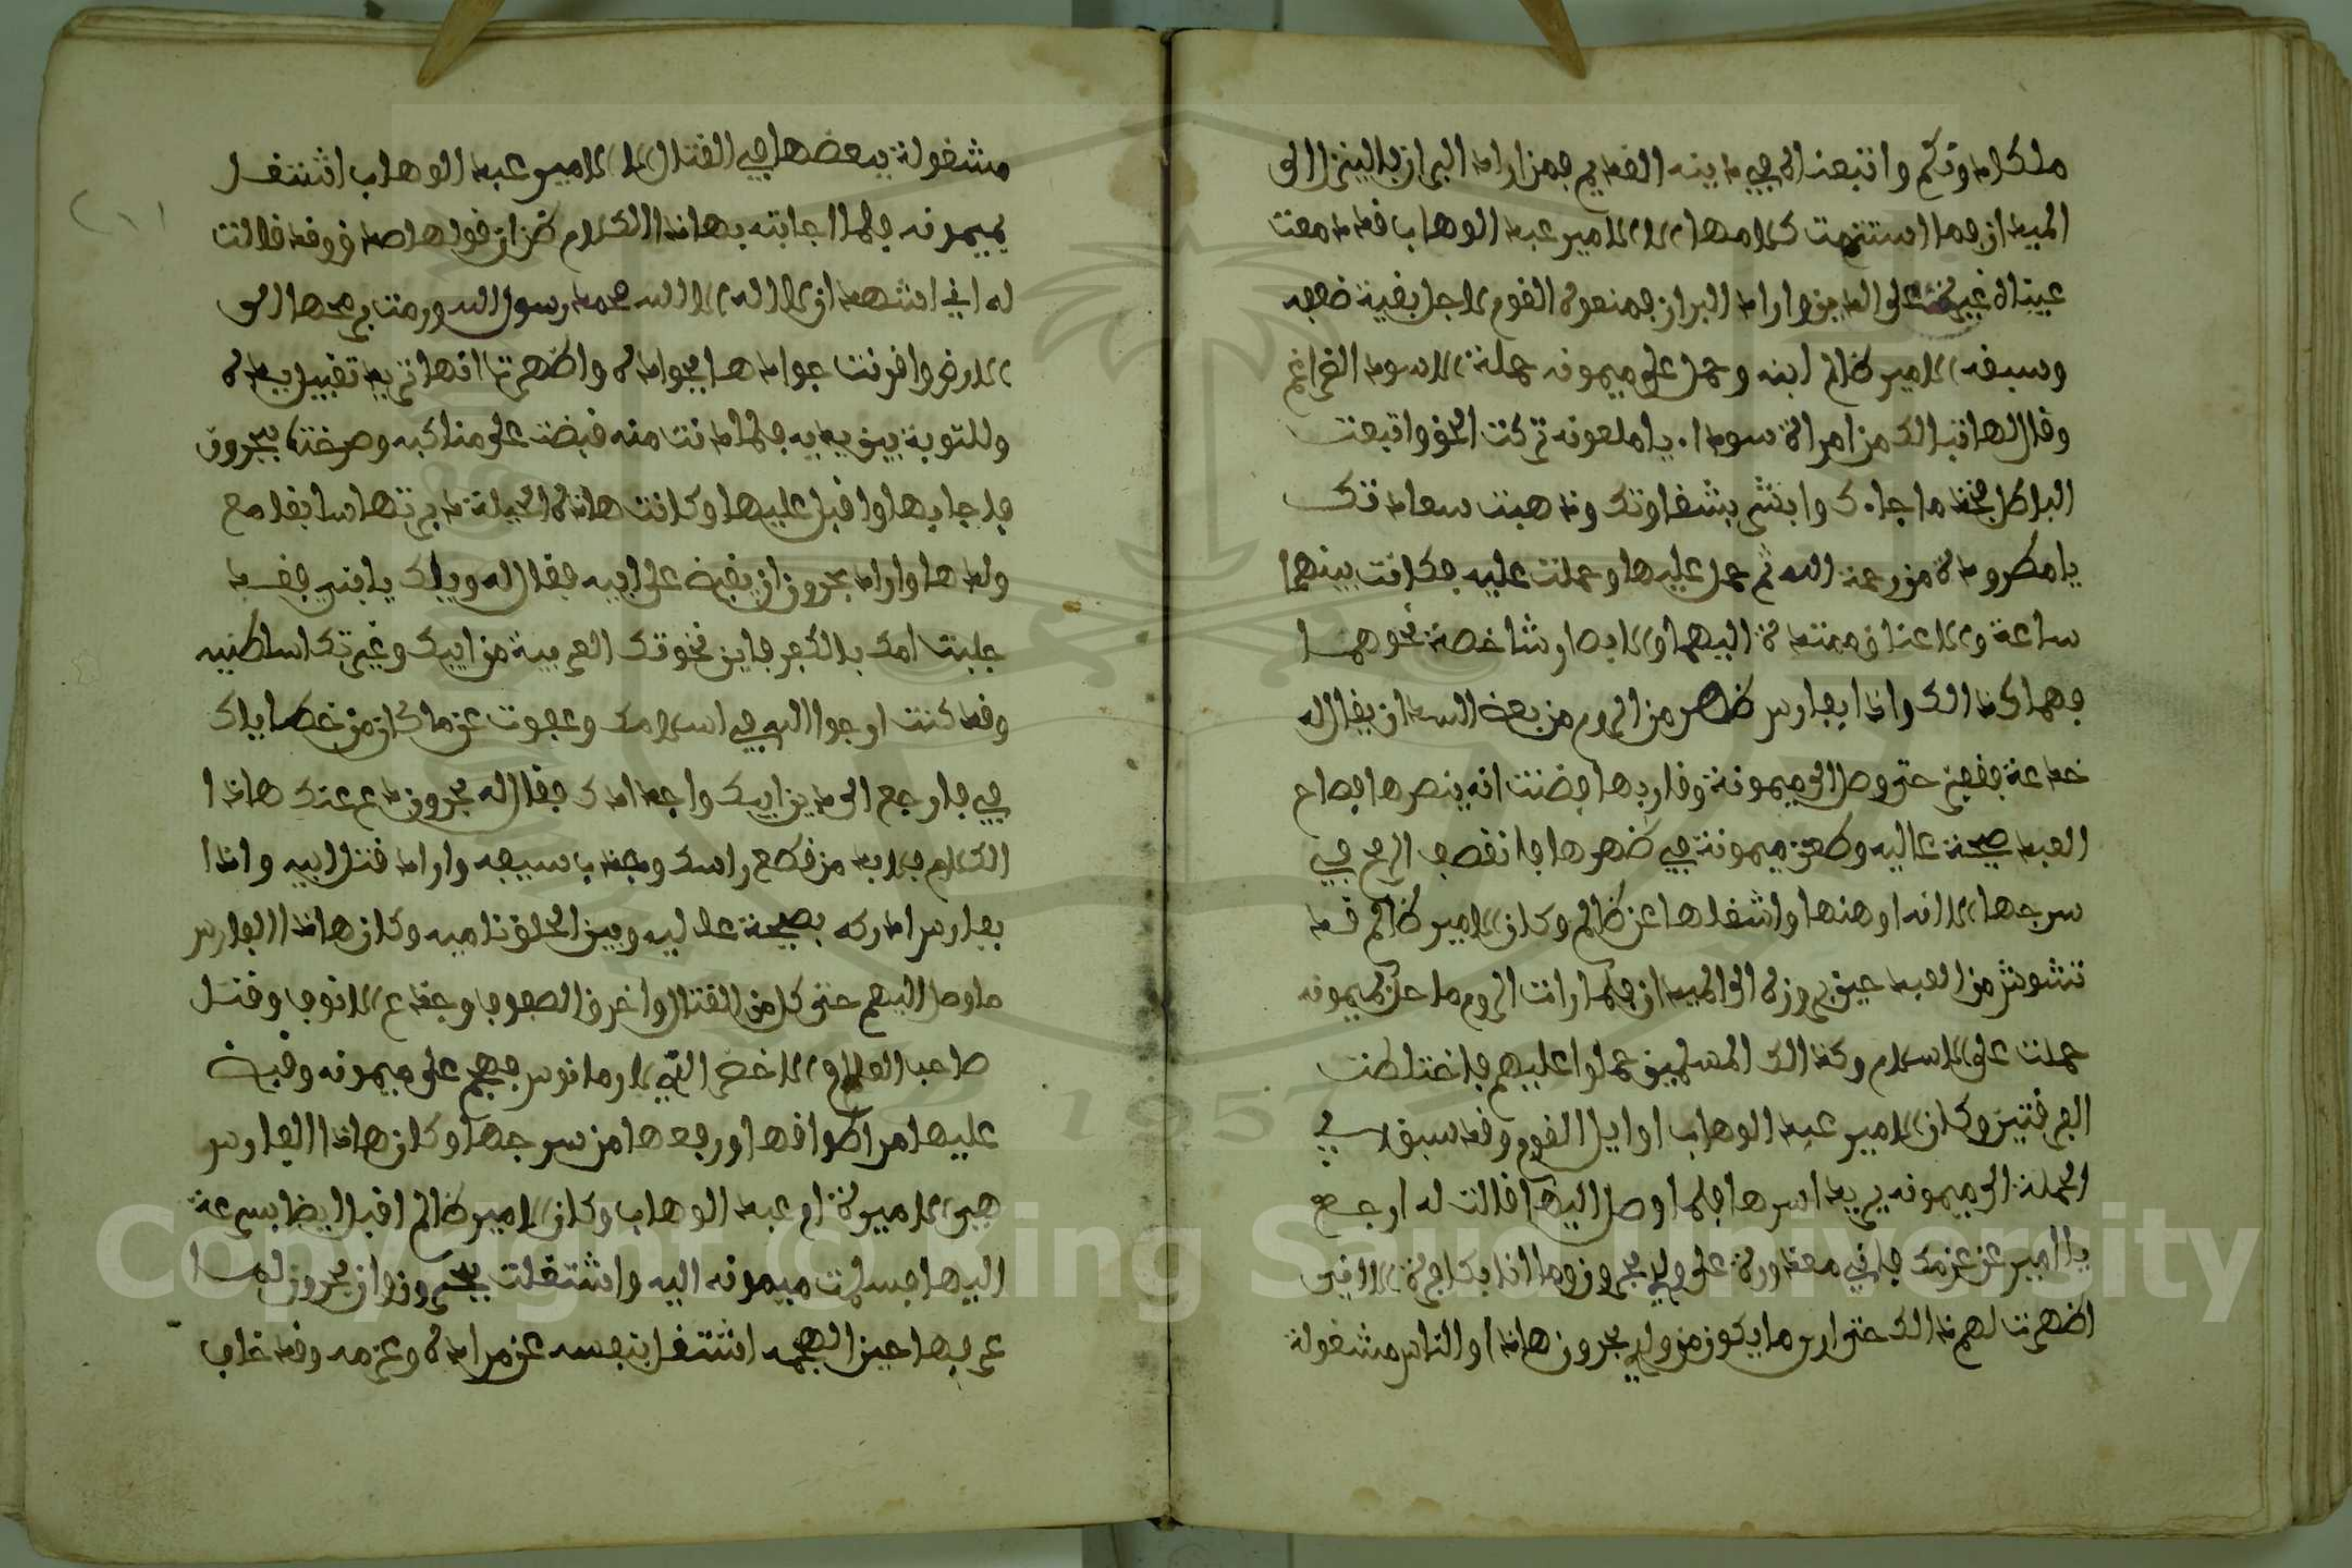 ملكاه وتكم واتبعناه في دينه القديم فمن اراد البراز فاليبزا الى
الميدان فما استتمت كلامها الا الامير عبد الوهاب قد دمعت
عيناه غيرة على الدين واراد البراز فمنعوه القوم لاجل بقية ضعفه
وسبقه الامير ظالم ابنه وحمل على ميمونه حملة الاسود الضراغم
وقال لها تبا لك من امراة سودا يا ملعونه تركت الحق واتبعت
الباطل فخذ ما جاءك وابشر بشقاوتك وذهبت سعادتك
يا مطرودة من رحمة الله ثم حمل عليها وحملت عليه فكانت بينهما
ساعة والاعناق ممتدة اليهما والابصار شاخصة نحوهما
فهما كذالك واذا بفارس ظهر من الروم من بعض السودان يقال له
خدعة فقفز حتى وصل الى ميمونة وقاربها فضنت انه ينصرها فصاح
العبد صيحة عاليه وطعن ميمونة في ظهرها فانقصف الرمح في
سرجها الا انه اوهنها واشغلها عن ظالم وكان الامير ظالم قد
تشوش من العبد حين بروزه الى الميدان فلما رات الروم ما حل بميمونه
حملت على الاسلام وكذالك المسلمين حملوا عليهم فاختلطت
الفرقتين وكان الامير عبد الوهاب اوايل القوم وقد سبق في
الحملة الى ميمونه يريد اسرها فلما وصل اليها قالت له ارجع
يا امير عن عزمك فاني معذورة على ولدي بحرون وما انا بكافرة الا اني
اظهرت لهم ذالك حتى ارى ما يكون من ولدي بحرون هاذا والناس مشغولة
مشغولة ببعضها في القتال الا الامير عبد الوهاب اشتغل
بميمونه فلما اجابته بهاذا الكلام ظن ان قولها صدق وقد قالت
له اني اشهد ان لا اله الا الله محمد رسول الله ورمت برمحها الى
الارض وافرنت جوادها بجواده واظهرت انها تريد تقبيل يده
وللتوبة بين يديه فلما دنت منه قبضت على مناكبه وصرخت بحرون
فاجابها واقبل عليها وكانت هاذه الحيلة دبرتها سابقا مع
ولدها واراد بحرون ان يقبض على ابيه فقال له ويلك يا بني فقد
جلبت امك بالكفر فاين نخوتك العربية من ابيك وغيرتك اسا ظنيه
وقد كنت ارجوا الله في اسلامك وعفوت عن ما كان من خطاياك
في فارجع الى دين ابيك واجدادك فقال له بحرون دع عنك هاذا
الكلام فلابد من قطع راسك وجذب سيفه واراد قتل ابيه واذا
بفارس ادركه بصيحة عاليه وبين الخلق ناميه وكان هاذا الفارس
ما وصل اليهم حتى كل من القتال واخرق الصفوف وجذع الانوف وقتل
صاحب العلام الاخضر التي لارمانوس فهجم على ميمونه وقبض
عليها من اطواقها ورفعها من سرجها وكان هاذا الفارس
هي الاميرة ام عبد الوهاب وكان الامير ظالم اقبل ايضا بسرعة
اليها فسلمت ميمونه اليه واشتغلت ببحرون وان بحرون لما
عرفها حين الهجمه اشتغل بنفسه عن مراده وعزمه وقد خاب